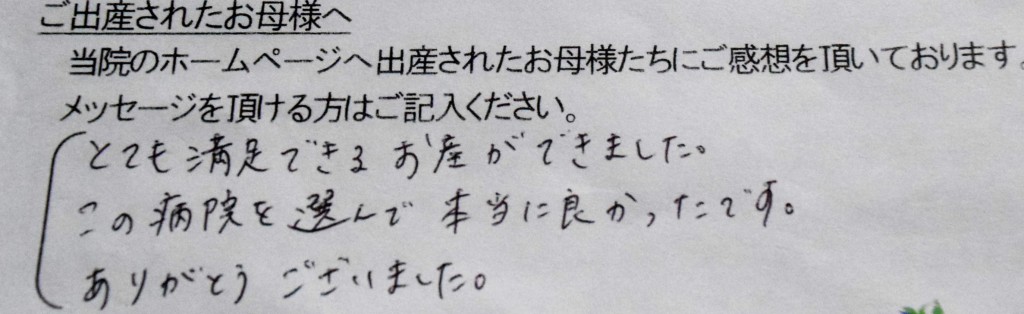 ご出産されたお母様へ
当院のホームページへ出産されたお母様たちにご感想を頂いております。
メッセージを頂ける方はご記入ください。
とても満足できるお産ができました。
この病院を選んで本当に良かったです。
ありがとうございました。